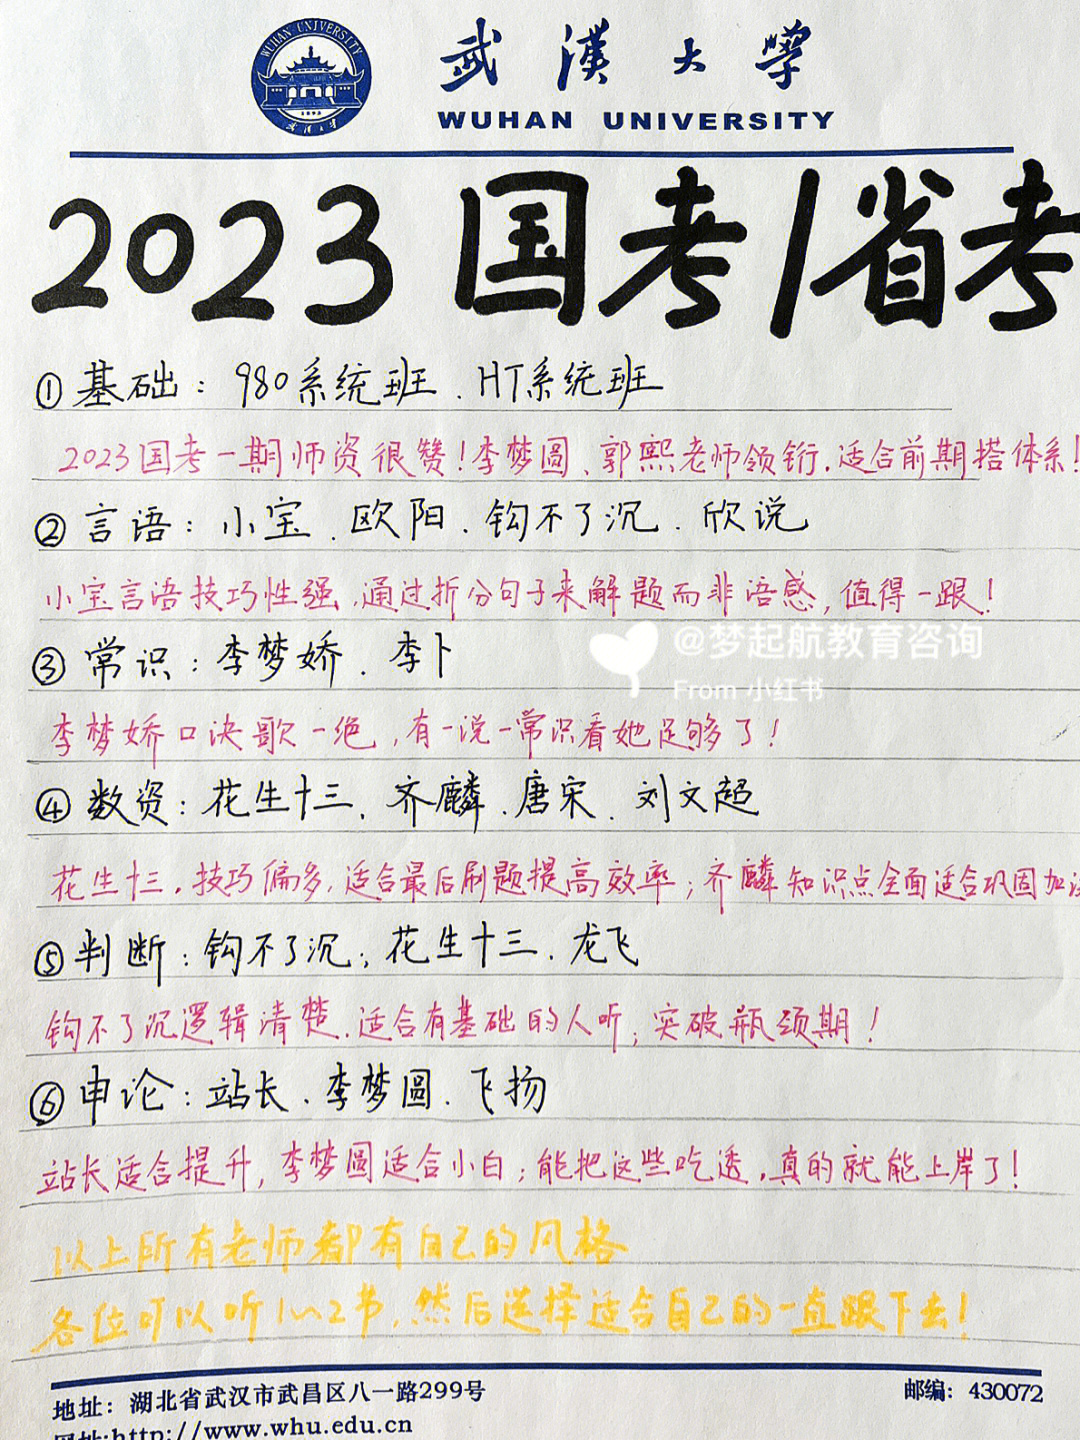 WUHAN UNIVERSITY
1893
武漢大学
武漢大学
WUHAN UNIVERSITY
2023国考/省考
①基础：980系统班、HT系统班
2023国考一期师资很赞！李梦圆、郭熙老师领衔，适合前期搭体系！
②言语：小宝、欧阳、钩不了沉、欣说
小宝言语技巧性强，通过拆分句子来解题而非语感，值得一跟！
③常识：李梦娇、李卜
@梦起航教育咨询
From 小红书
李梦娇口诀歌一绝，有一说一常识看她足够了！
④数资：花生十三、齐麟、唐宋、刘文超
花生十三，技巧偏多，适合最后刷题提高效率；齐麟知识点全面适合巩固加
⑤判断：钩不了沉；花生十三、龙飞
钩不了沉逻辑清楚，适合有基础的人听；突破瓶颈期！
⑥申论：站长、李梦圆、飞扬
站长适合提升，李梦圆适合小白；能把这些吃透，真的就能上岸了！
以上所有老师都有自己的风格
各位可以听1~2节，然后选择适合自己的一直跟下去！
地址：湖北省武汉市武昌区八一路299号
邮编：430072
网址:http://www.whu.edu.cn